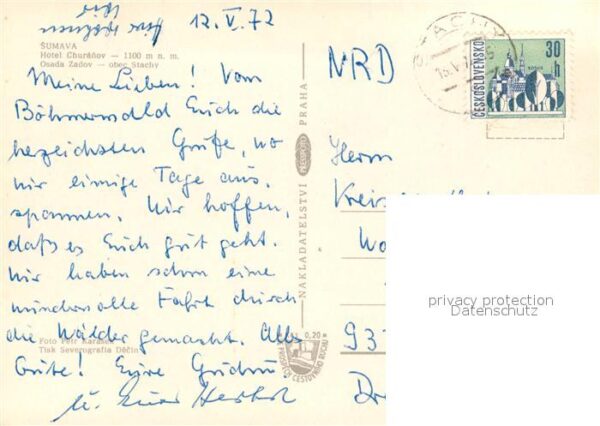 Wir
hier wohnen
12. V. 72
ŠUMAVA
Hotel Churáňov — 1100 m n. m.
Osada Zadov — obec Stachy
Meine Lieben! Vom
Böhmerwald Euch die
herzlichsten Grüße, wo
wir einige Tage aus-
spannen. Wir hoffen,
daß es Euch gut geht.
Wir haben schon eine
wundervolle Fahrt durch
die Wälder gemacht. Alles
Gute! Eure
u. Euer Herbert
Foto Petr Karásek
Tisk Severografia Děčín
NAKLADATELSTVÍ PRESSFOTO PRAHA
0,20
STACHY
ČESKOSLOVENSKO
30
h
NRD
Herrn
Kreis
privacy protection
Datenschutz